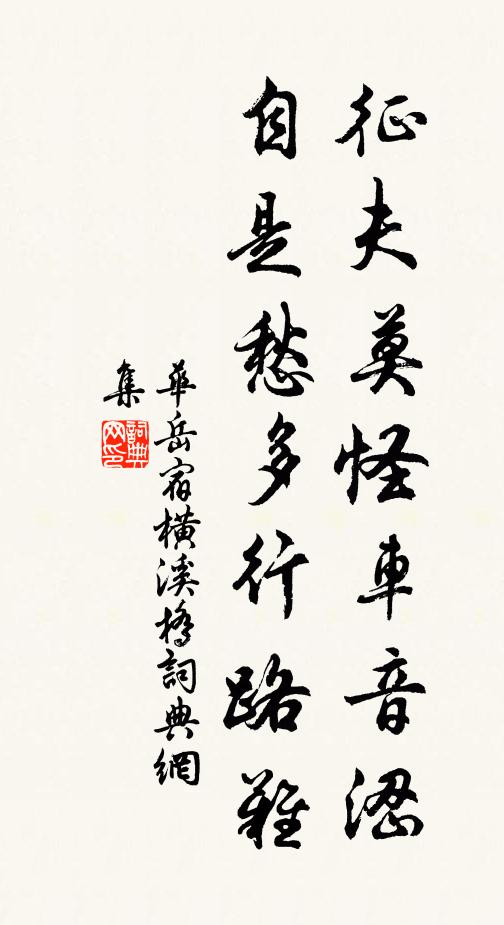 征夫莫怪車音澀
自是愁多行路難
華岳宿橫溪橋詞典網
集
詞典
网印